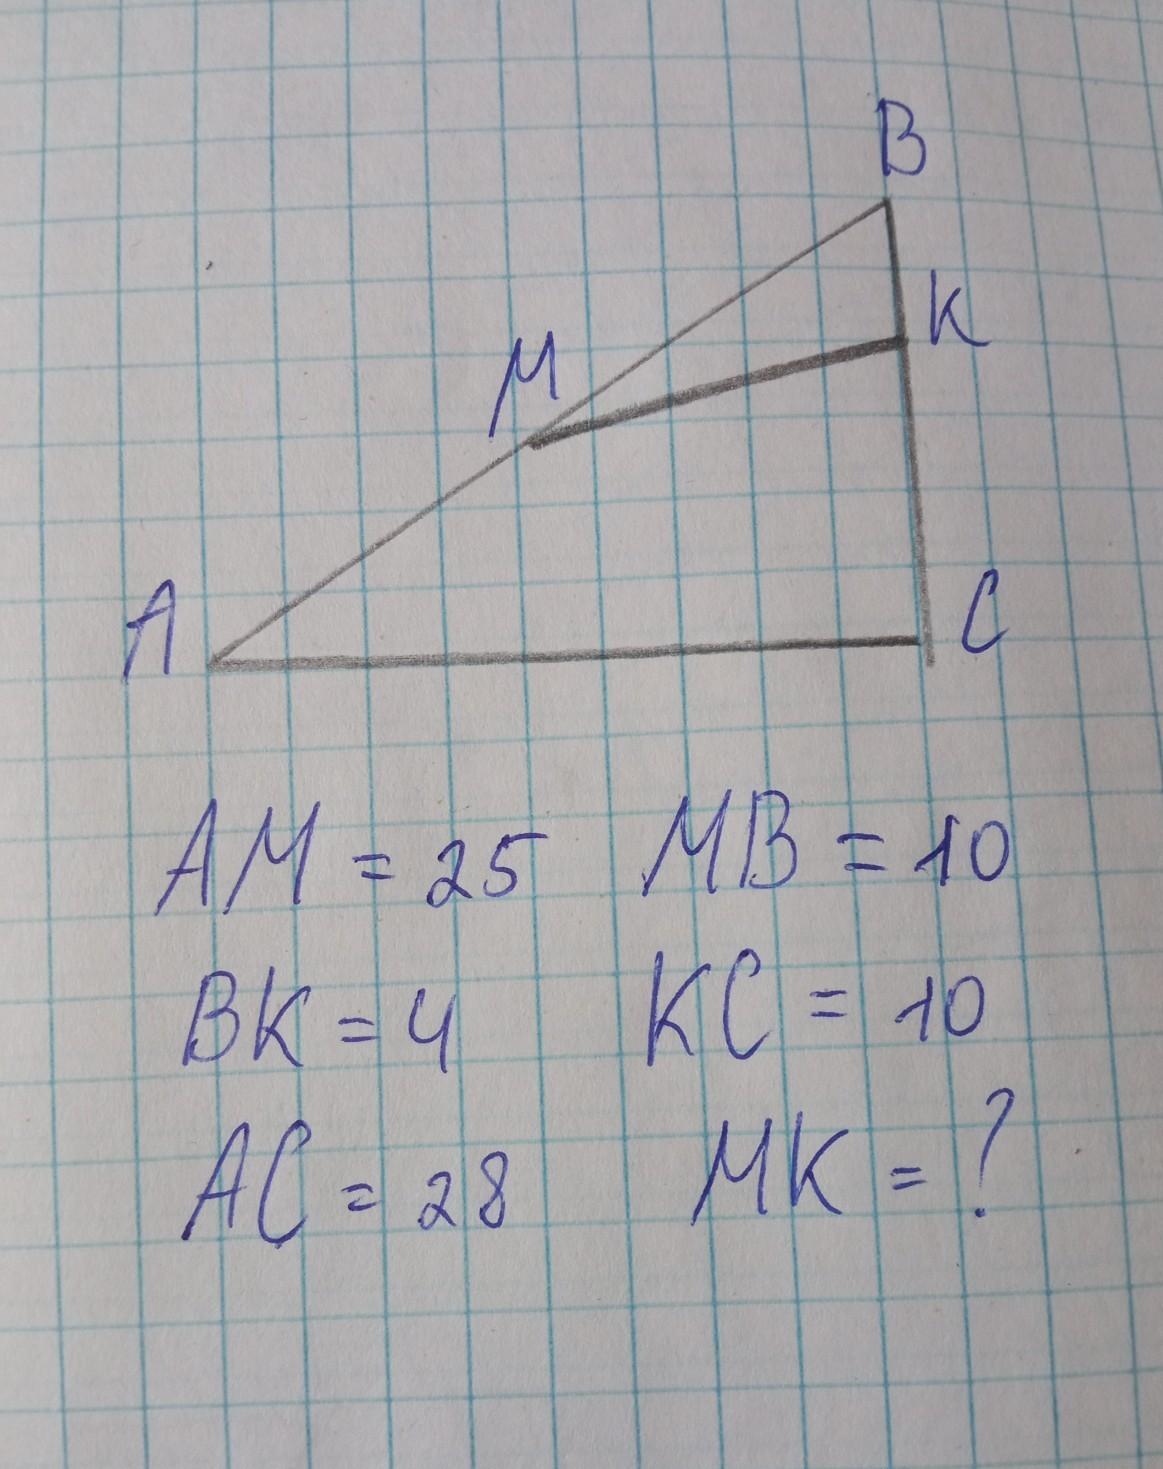 B
K
M
A
C
AM = 25 MB = 10
BK = 4 KC = 10
AC = 28 MK = ?